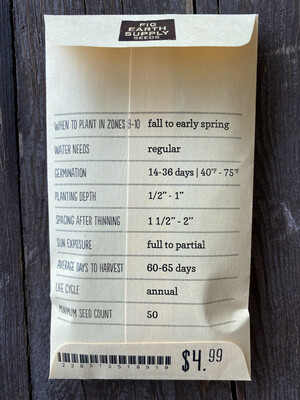 FIG
EARTH
SUPPLY
SEEDS
WHEN TO PLANT IN ZONES 8-10 fall to early spring
WATER NEEDS regular
GERMINATION 14-36 days | 40°F - 75°F
PLANTING DEPTH 1/2" - 1"
SPACING AFTER THINNING 1 1/2" - 2"
SUN EXPOSURE full to partial
AVERAGE DAYS TO HARVEST 60-65 days
LIFE CYCLE annual
MINIMUM SEED COUNT 50
$4.99
228512518919